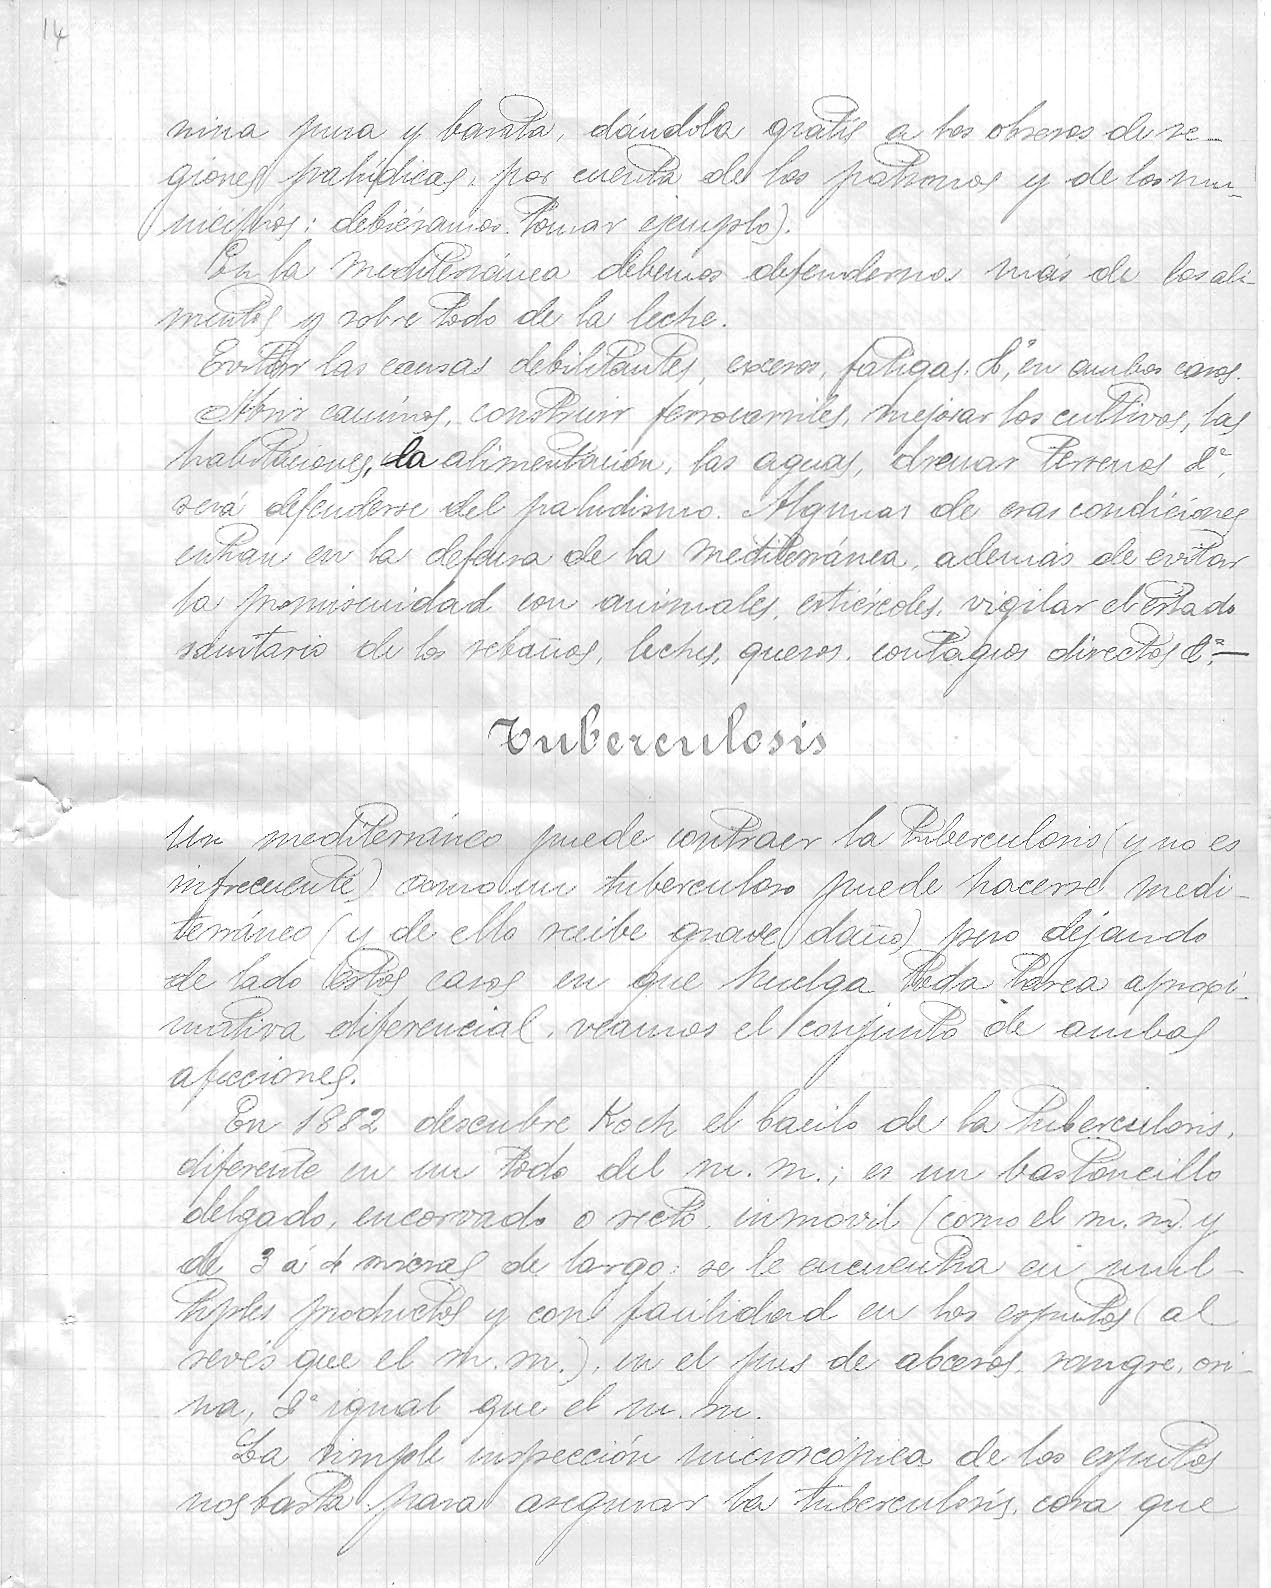 14
nina pura y barata, dándola gratis a los obreros de re-
giones palúdicas, por cuenta de los patronos y de los mu-
nicipios; debiéramos tomar ejemplo).
En la mediterránea debemos defendernos más de los ali-
mentos y sobre todo de la leche.
Evitar las causas debilitantes, excesos, fatigas, &ª, en ambos casos.
Abrir caminos, construir ferrocarriles, mejorar los cultivos, las
habitaciones, la alimentación, las aguas, drenar terrenos &ª,
será defenderse del paludismo. Algunas de esas condiciones
entran en la defensa de la mediterránea, además de evitar
la promiscuidad con animales, estiércoles, vigilar el estado
sanitario de los rebaños, leches, quesos, contagios directos &ª.—
Tuberculosis
Un mediterráneo puede contraer la tuberculosis (y no es
infrecuente) como un tuberculoso puede hacerse medi-
terráneo (y de ello recibe grave daño) pero dejando
de lado estos casos en que huelga toda tarea aproxi-
mativa diferencial, veamos el conjunto de ambas
afecciones.
En 1882 descubre Koch el bacilo de la tuberculosis,
diferente en un todo del m. m.; es un bastoncillo
delgado, encorvado o recto, inmovil (como el m. m) y
de 3 á 4 micras de largo: se le encuentra en múl-
tiples productos y con facilidad en los esputos (al
revés que el m. m.), en el pus de abcesos, sangre, ori-
na, &ª igual que el m. m.
La simple inspección microscópica de los esputos
nos basta para asegurar la tuberculosis, cosa que